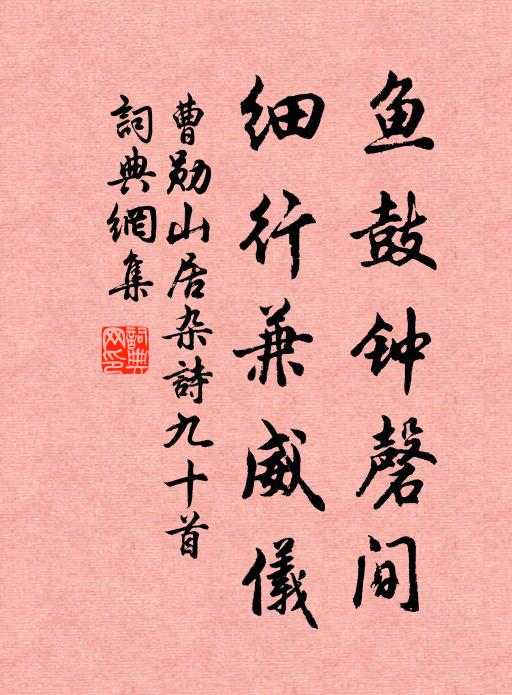 鱼鼓钟磬间
细行兼威儀
曹勋山居杂詩九十首
詞典網集
詞典
网印